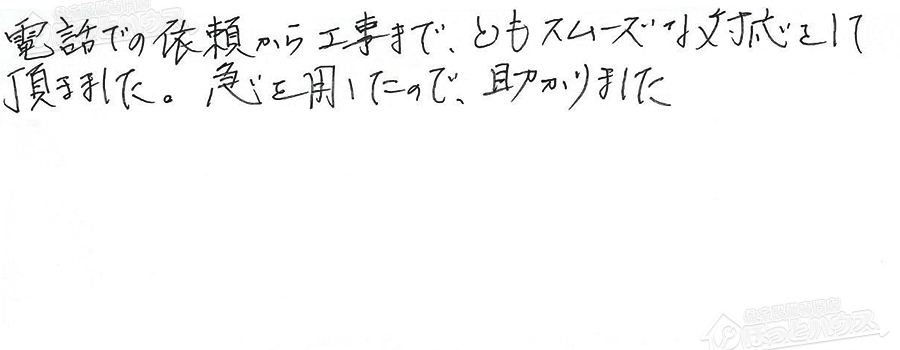 電話での依頼から工事まで、ともスムーズな対応をして
頂きました。急を用したので、助かりました
ほっとハウス